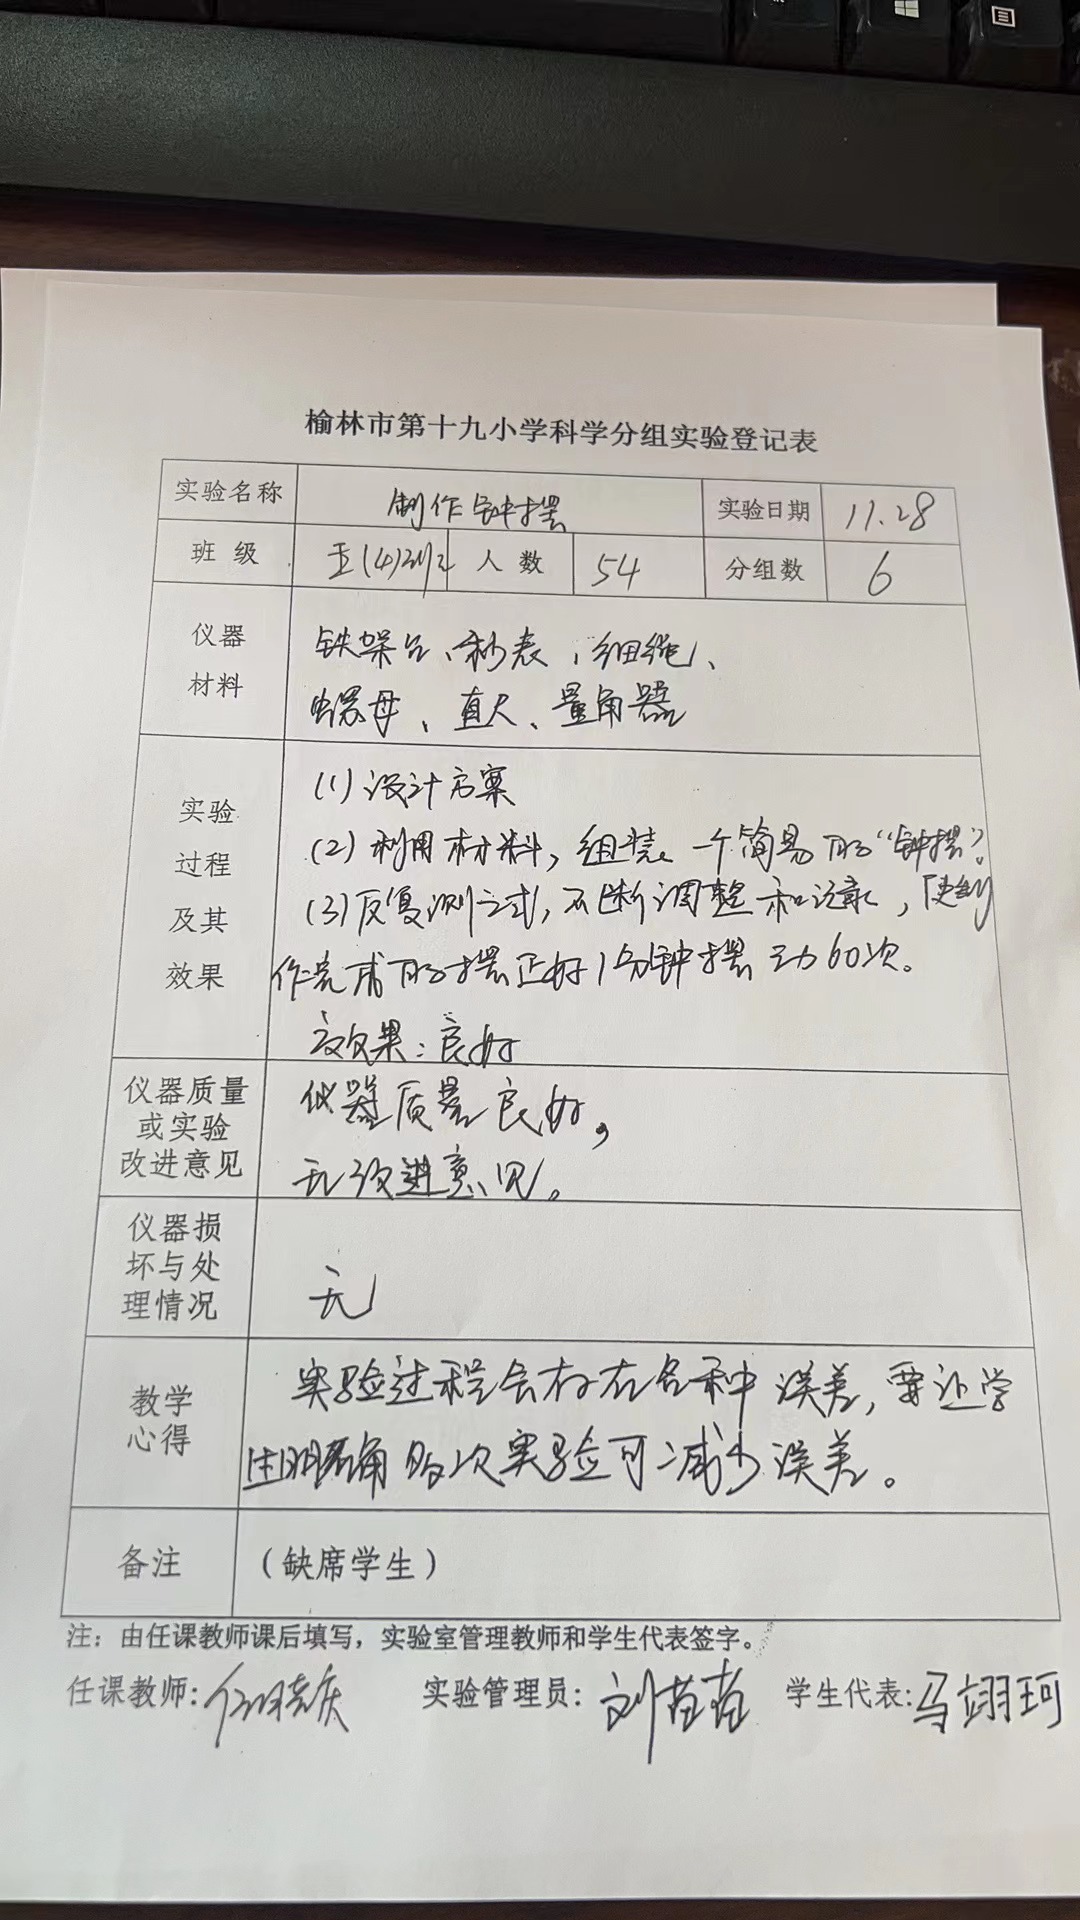 榆林市第十九小学科学分组实验登记表
实验名称 制作钟摆 实验日期 11.28
班级 五(4)班 人数 54 分组数 6
仪器
材料
铁架台、秒表、细绳、
螺母、直尺、量角器
实验
过程
及其
效果
(1)设计方案
(2)利用材料,组装一个简易的“钟摆”。
(3)反复测试,不断调整和记录,使制
作完成的摆正好1分钟摆动60次。
效果:良好
仪器质量
或实验
改进意见
仪器质量良好,
无改进意见。
仪器损
坏与处
理情况
无
教学
心得
实验过程会存在各种误差,要让学
生明确多次实验可减少误差。
备注 (缺席学生)
注:由任课教师课后填写,实验室管理教师和学生代表签字。
任课教师: 实验管理员:刘苗苗 学生代表:马翊珂